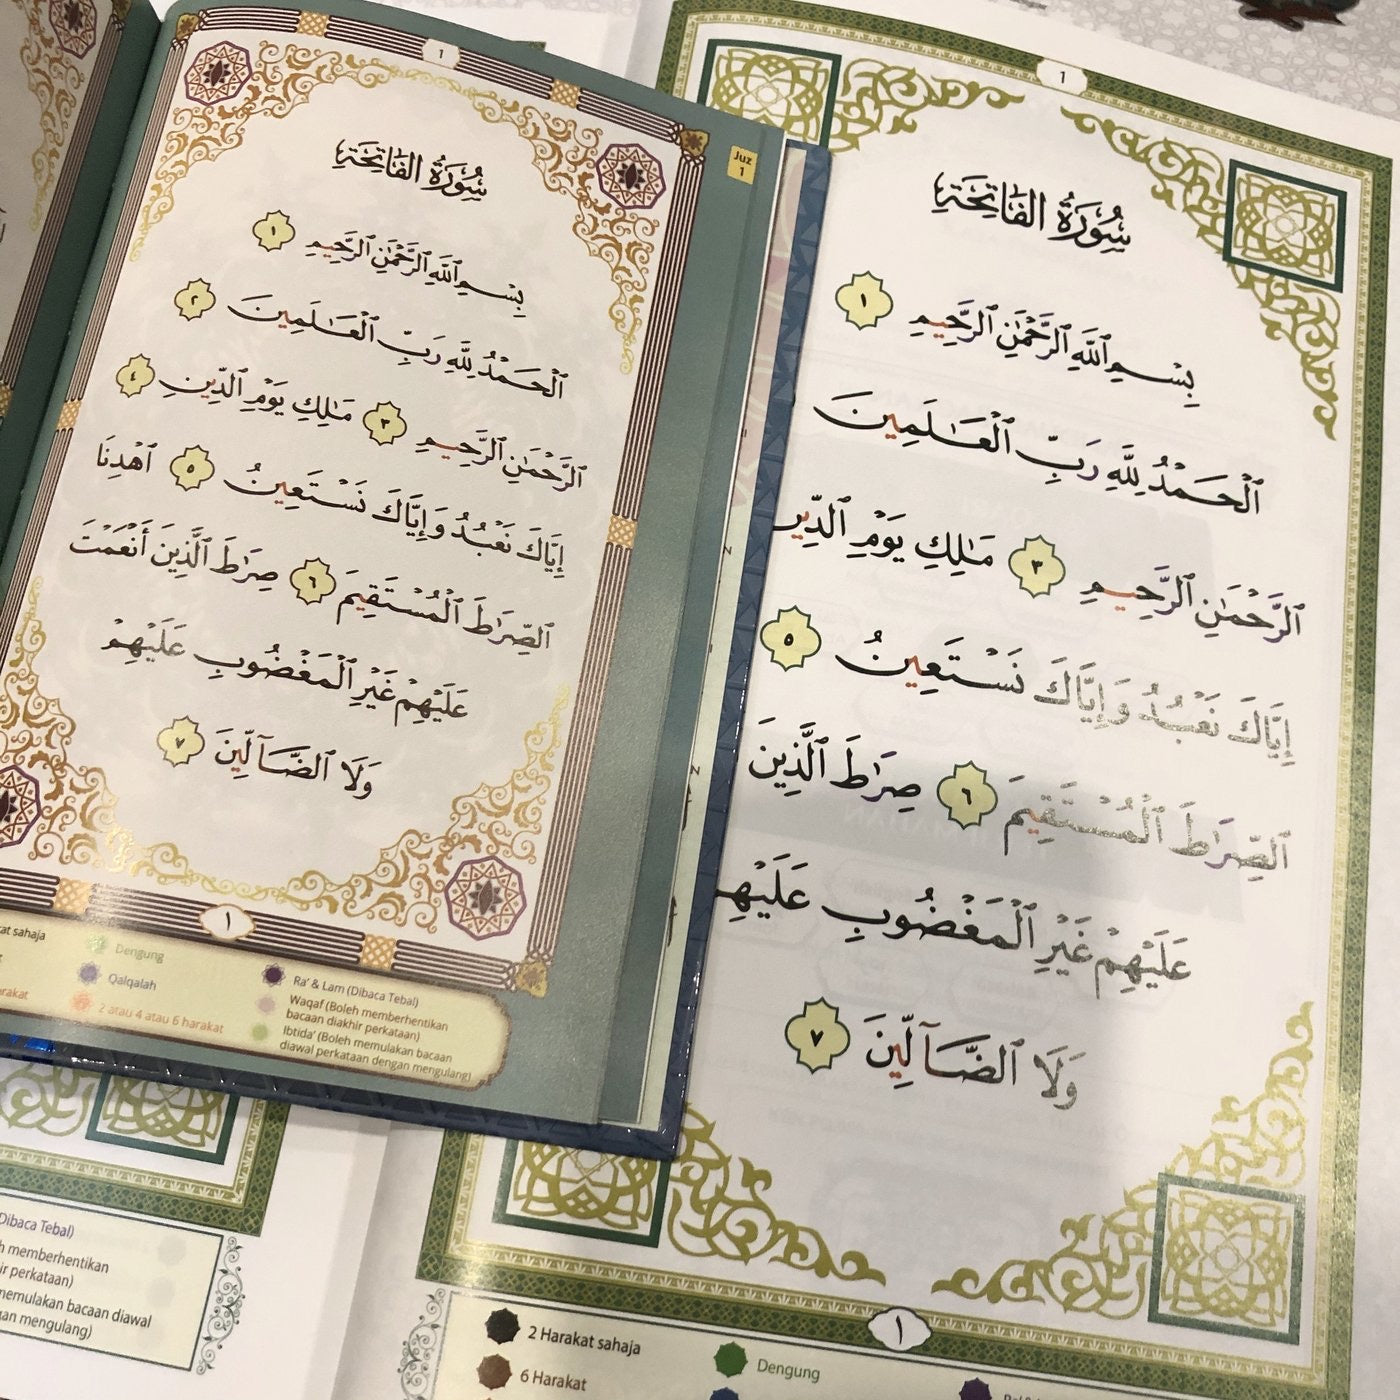 1
Juz
1
سُورَةُ الفَاتِحَةِ
بِسْمِ ٱللَّهِ ٱلرَّحْمَٰنِ ٱلرَّحِيمِ ١
ٱلْحَمْدُ لِلَّهِ رَبِّ ٱلْعَـٰلَمِينَ ٢
ٱلرَّحْمَٰنِ ٱلرَّحِيمِ ٣ مَـٰلِكِ يَوْمِ ٱلدِّينِ ٤
إِيَّاكَ نَعْبُدُ وَإِيَّاكَ نَسْتَعِينُ ٥ ٱهْدِنَا
ٱلصِّرَٰطَ ٱلْمُسْتَقِيمَ ٦ صِرَٰطَ ٱلَّذِينَ أَنْعَمْتَ
عَلَيْهِمْ غَيْرِ ٱلْمَغْضُوبِ عَلَيْهِمْ
وَلَا ٱلضَّآلِّينَ ٧
١
sahaja
Dengung
Qalqalah
2 atau 4 atau 6 harakat
Ra' & Lam (Dibaca Tebal)
Waqaf (Boleh memberhentikan
bacaan diakhir perkataan)
Ibtida' (Boleh memulakan bacaan
diawal perkataan dengan mengulang)
1
سُورَةُ الفَاتِحَةِ
بِسْمِ ٱللَّهِ ٱلرَّحْمَٰنِ ٱلرَّحِيمِ ١
ٱلْحَمْدُ لِلَّهِ رَبِّ ٱلْعَـٰلَمِينَ
ٱلرَّحْمَٰنِ ٱلرَّحِيمِ ٣ مَـٰلِكِ يَوْمِ
إِيَّاكَ نَعْبُدُ وَإِيَّاكَ نَسْتَعِينُ ٥
ٱلصِّرَٰطَ ٱلْمُسْتَقِيمَ ٦ صِرَٰطَ ٱلَّذِينَ
عَلَيْهِمْ غَيْرِ ٱلْمَغْضُوبِ
وَلَا ٱلضَّآلِّينَ ٧
١
2 Harakat sahaja
6 Harakat
Dengung
Tebal)
memberhentikan
perkataan)
bacaan diawal
mengulang)